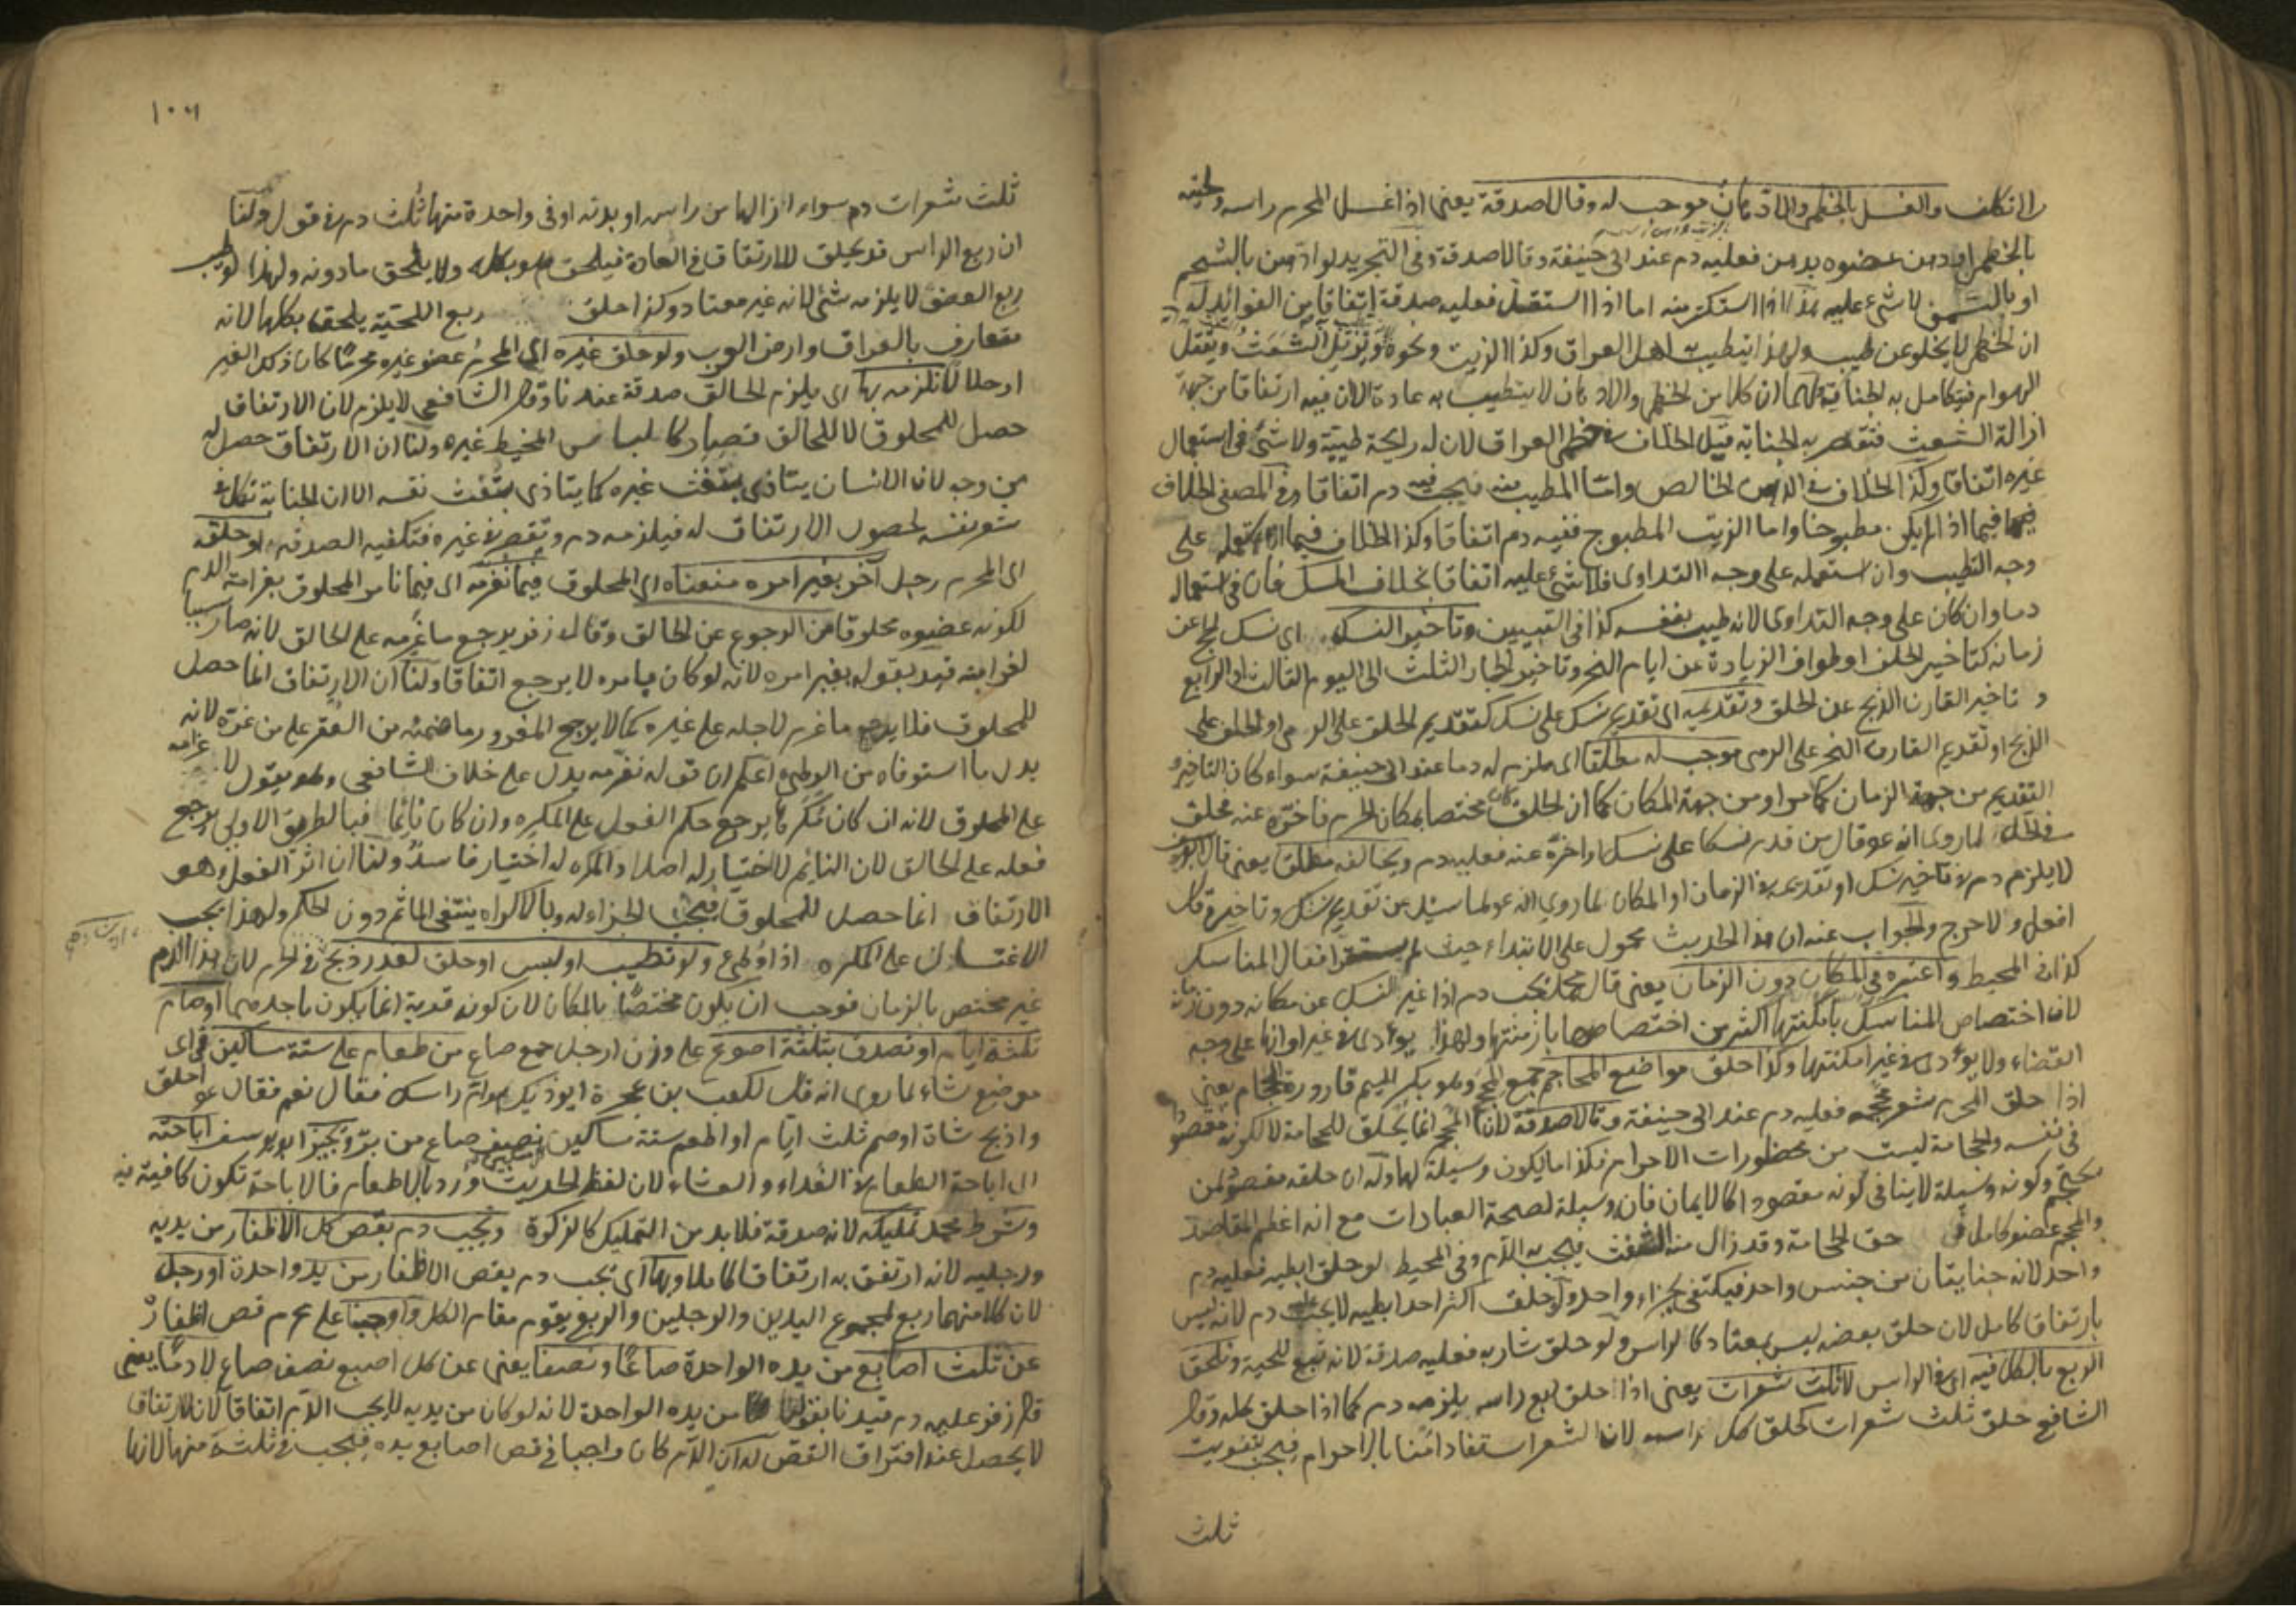 الانكلف والغسل بالخطمى والادهان موجب له وقالا صدقة يعنى اذا غسل المحرم راسه ولحيته
بالخطمى او دهن عضوه بدهن فعليه دم عند ابى حنيفة وقالا صدقة وفى التجريد لو ادهن بالشحم
او بالسمن لا شئ عليه هذا اذا استكثر منه اما اذا استقل فعليه صدقة اتفاقا من الفوائد له
ان الخطمى لا يخلو عن طيب ولهذا يتطيب به اهل العراق وكذا الزيت ونحوه ويزيل الشعث ويقتل
الهوام فيتكامل به الجناية ولهما ان كلا من الخطمى والادهان لا يتطيب به عادة الا ان فيه ارتفاقا من جهة
ازالة الشعث فتقصر به الجناية قيل الخلاف فى خطمى العراق لان له رايحة طيبة ولا شئ فى استعمال
غيره اتفاقا وكذا الخلاف فى الدهن الخالص واما المطيب منه فيجب فيه دم اتفاقا وفى المصفى الخلاف
فيما اذا لم يكن مطبوخا واما الزيت المطبوخ ففيه دم اتفاقا وكذا الخلاف فيما اذا استعمله على
وجه التطيب وان استعمله على وجه التداوى فلا شئ عليه اتفاقا بخلاف المسك فان فى استعماله
دما وان كان على وجه التداوى لانه طيب بنفسه كذا فى التبيين وتاخير النسك اى نسك الحج عن
زمانه كتاخير الحلق او طواف الزيارة عن ايام النحر وتاخير الجمار الثلث الى اليوم الثالث او الرابع
وتاخير القارن الذبح عن الحلق وتقديمه اى تقديم نسك على نسك كتقديم الحلق على الرمى او الحلق على
الذبح او تقديم القارن النحر على الرمى موجب له مطلقا اى ملزم له دما عند ابى حنيفة سواء كان التاخير و
التقديم من جهة الزمان كما مر او من جهة المكان كما ان الحلق كان مختصا بمكان الحرم فاخره عنه فحلق
فى الحل لما روى انه عم قال من قدم نسكا على نسك او اخره عنه فعليه دم ويخالفه مطلقا يعنى قال ابو يوسف
لا يلزم دم فى تاخير نسك او تقديمه فى الزمان او المكان لما روى انه عم لما سئل عن تقديم نسك وتاخيره قال
افعل ولا حرج والجواب عنه ان هذا الحديث محمول على الابتداء حيث لم يستقر افعال المناسك
كذا فى المحيط واعتبره فى المكان دون الزمان يعنى قال محمد يجب دم اذا غير النسك عن مكانه دون زمانه
لان اختصاص المناسك بامكنتها اكثر من اختصاصها بازمنتها ولهذا يؤدى فى غير اوانها على وجه
القضاء ولا يؤدى فى غير امكنتها وكذا حلق مواضع المحاجم جمع المحجم وهو بكسر الميم قارورة الحجام يعنى
اذا حلق المحرم شعر محجمه فعليه دم عند ابى حنيفة وقالا صدقة لان المحجم انما يحلق للحجامة لا لكونه مقصودا
فى نفسه والحجامة ليست من محظورات الاحرام فكذا ما يكون وسيلة لها وله ان حلقه مقصود لمن
يحتجم وكونه وسيلة لا ينافى كونه مقصودا كالايمان فانه وسيلة لصحة العبادات مع انه اعظم المقاصد
والمحجم عضو كامل فى حق الحجامة وقد زال منه التفث فيجب به الدم وفى المحيط لو حلق ابطيه فعليه دم
واحد لانه جنايتان من جنس واحد فيكتفى بجزاء واحد ولو حلق اكثر احد ابطيه لا يجب دم لانه ليس
بارتفاق كامل لان حلق بعضه ليس بمعتاد كالراس ولو حلق شاربه فعليه صدقة لانه تبع للحية ونلحق
الربع بالكل فيه اى فى الراس لا ثلث شعرات يعنى اذا حلق ربع راسه يلزمه دم كما اذا حلق كله وقال
الشافعى حلق ثلث شعرات كحلق كل راسه لان الشعر استفاد امنا بالاحرام فيجب بتفويت
ثلث
١٠٦
ثلث شعرات دم سواء ازالها من راسه او بدنه او فى واحدة منها ثلث دم فى قول ولنا
ان ربع الراس قد يحلق للارتفاق فى العادة فيلحق هو بكله ولا يلحق ما دونه ولهذا لو طيب
ربع العضو لا يلزمه شئ لانه غير معتاد وكذا حلق ربع اللحية يلحق بكلها لانه
متعارف بالعراق وارض العرب ولو حلق غيره اى المحرم عضو غيره محرما كان ذلك الغير
او حلالا نلزمه بها اى يلزم الحالق صدقة عندنا وقال الشافعى لا يلزم لان الارتفاق
حصل للمحلوق لا للحالق فصار كالباس المخيط غيره ولنا ان الارتفاق حصل له
من وجه لان الانسان يتاذى بتفث غيره كما يتاذى بتفث نفسه الا ان الجناية تكامل
شعر نفسه لحصول الارتفاق له فيلزمه دم وتقصر فى غيره فتكفيه الصدقة او حلقه
اى المحرم رجل آخر بغير امره منعناه اى المحلوق فيما نغرمه اى فيما نامر المحلوق بغرامته الدم
لكونه عضوه محلوقا من الرجوع عن الحالق وقال زفر يرجع ما غرمه على الحالق لانه صار سببا
لغرامته قيد بقوله بغير امره لانه لو كان بامره لا يرجع اتفاقا ولنا ان الارتفاق انما حصل
للمحلوق فلا يرجع ما غرم لاجله على غيره كما لا يرجع المغرور بما ضمنه من العقر على من غره لانه
بدل ما استوفاه من الوطئ اعلم ان قوله نغرمه يدل على خلاف الشافعى وهو يقول لا غرامة
على المحلوق لانه ان كان مكرها يرجع حكم الفعل على المكره وان كان نائما فبالطريق الاولى يرجع
فعله على الحالق لان النائم لا اختيار له اصلا والمكره له اختيار فاسد ولنا ان اثر الفعل وهو
الارتفاق انما حصل للمحلوق فيجب الجزاء له وبالاكراه ينتفى المأثم دون الحكم ولهذا يجب
الاغتسال على المكره اذا وطئ ولو تطيب او لبس او حلق لعذر ذبح فى الحرم لان هذا الدم
غير مختص بالزمان فوجب ان يكون مختصا بالمكان لان كونه قربة انما يكون باحدهما او صام
ثلثة ايام او تصدق بثلثة اصوع على وزن ارجل جمع صاع من طعام على ستة مساكين فى اى
موضع شاء لما روى انه قال لكعب بن عجرة ايوذيك هوام راسك فقال نعم فقال عم احلق
واذبح شاة او صم ثلث ايام او اطعم ستة مساكين نصف صاع من بر ويجيز ابو يوسف اباحته
اى اباحة الطعام فى الغداء والعشاء لان لفظ الحديث ورد بالاطعام فالاباحة تكون كافية فيه
وشرط محمد تمليكه لانه صدقة فلا بد من التمليك كالزكوة ويجب دم بقص كل الاظفار من يديه
ورجليه لانه ارتفق به ارتفاقا كاملا وبها اى يجب دم بقص الاظفار من يد واحدة او رجل
لان كلا منهما ربع لمجموع اليدين والرجلين والربع يقوم مقام الكل واوجبنا على محرم قص اظفاره
عن ثلث اصابع من يده الواحدة صاعا ونصفا يعنى عن كل اصبع نصف صاع لا دما يعنى
قال زفر عليه دم قيدنا بقولنا من يده الواحدة لانه لو كان من يديه لا يجب الدم اتفاقا لان الارتفاق
لا يحصل عند افتراق القص له ان الدم كان واجبا فى قص اصابع يده فيجب فى ثلثة منها لانها